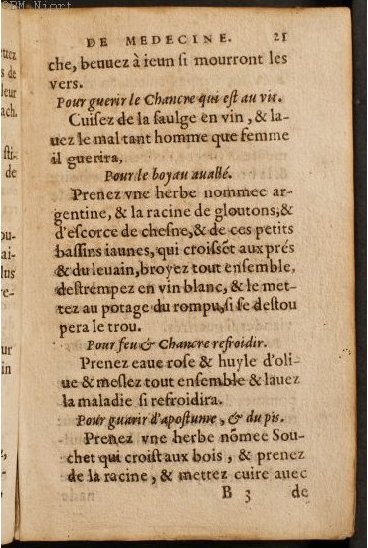 ©BM-Niort
DE MEDECINE. 21
che, beuuez à ieun ſi mourront les
vers.
Pour guerir le Chancre qui eſt au vit.
Cuiſez de la ſaulge en vin, & la-
uez le mal tant homme que femme
il guerira.
Pour le boyau auallé.
Prenez vne herbe nommee ar-
gentine, & la racine de gloutons, &
d'eſcorce de cheſne, & de ces petits
baſſins iaunes, qui croiſsēt aux prés
& du leuain, broyez tout enſemble,
deſtrempez en vin blanc, & le met-
tez au potage du rompu, ſi ſe deſtou
pera le trou.
Pour feu & Chancre refroidir.
Prenez eaue roſe & huyle d'oli-
ue & meſlez tout enſemble & lauez
la maladie ſi refroidira.
Pour guarir d'apoſtume, & du pis.
Prenez vne herbe nōmee Sou-
chet qui croiſt aux bois, & prenez
de la racine, & mettez cuire auec
B 3 de
s de
leur
ach.
ſti-
de
ou-
ai-
lus
re-
ur
in